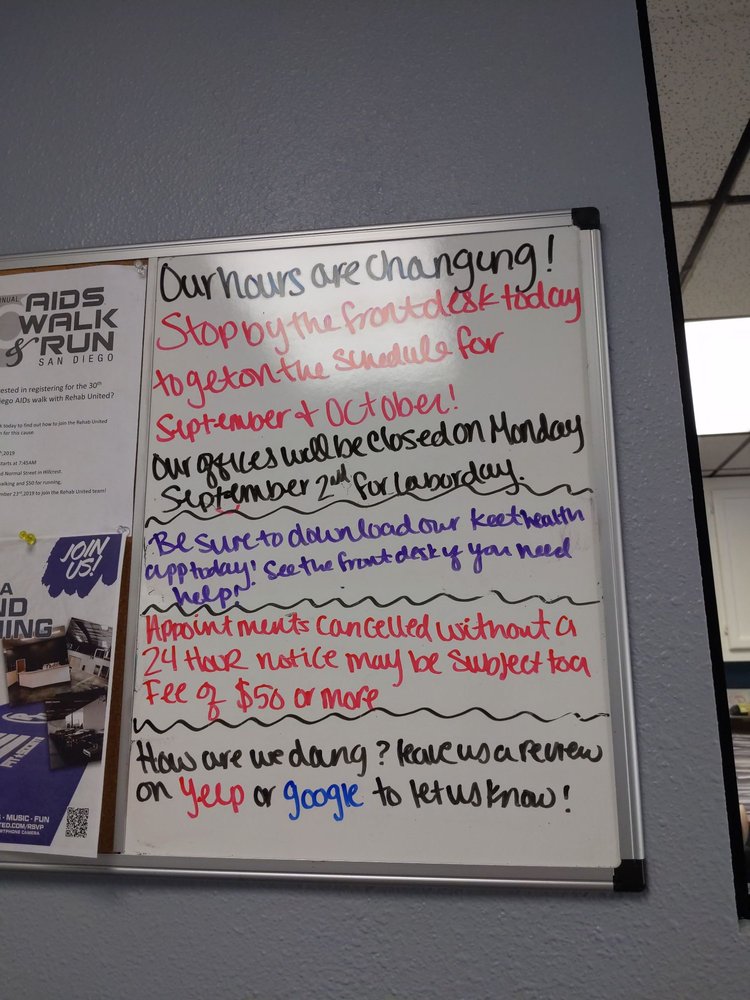 NNUAL
AIDS
WALK
& RUN
SAN DIEGO
ested in registering for the 30th
iego AIDs walk with Rehab United?
k today to find out how to join the Rehab United
for this cause.
,2019
tarts at 7:45AM
nd Normal Street in Hillcrest.
walking and $50 for running.
mber 23rd,2019 to join the Rehab United team!
JOIN
US!
A
ND
NING
· MUSIC · FUN
TED.COM/RSVP
RTPHONE CAMERA
Our hours are changing!
Stop by the front desk today
to get on the schedule for
September & October!
Our offices will be closed on Monday
September 2nd for labor day.
Be sure to download our keet health
app today! See the front desk if you need
help!
Appointments cancelled without a
24 Hour notice may be subject to a
Fee of $50 or more
How are we doing? leave us a review
on yelp or google to let us know!